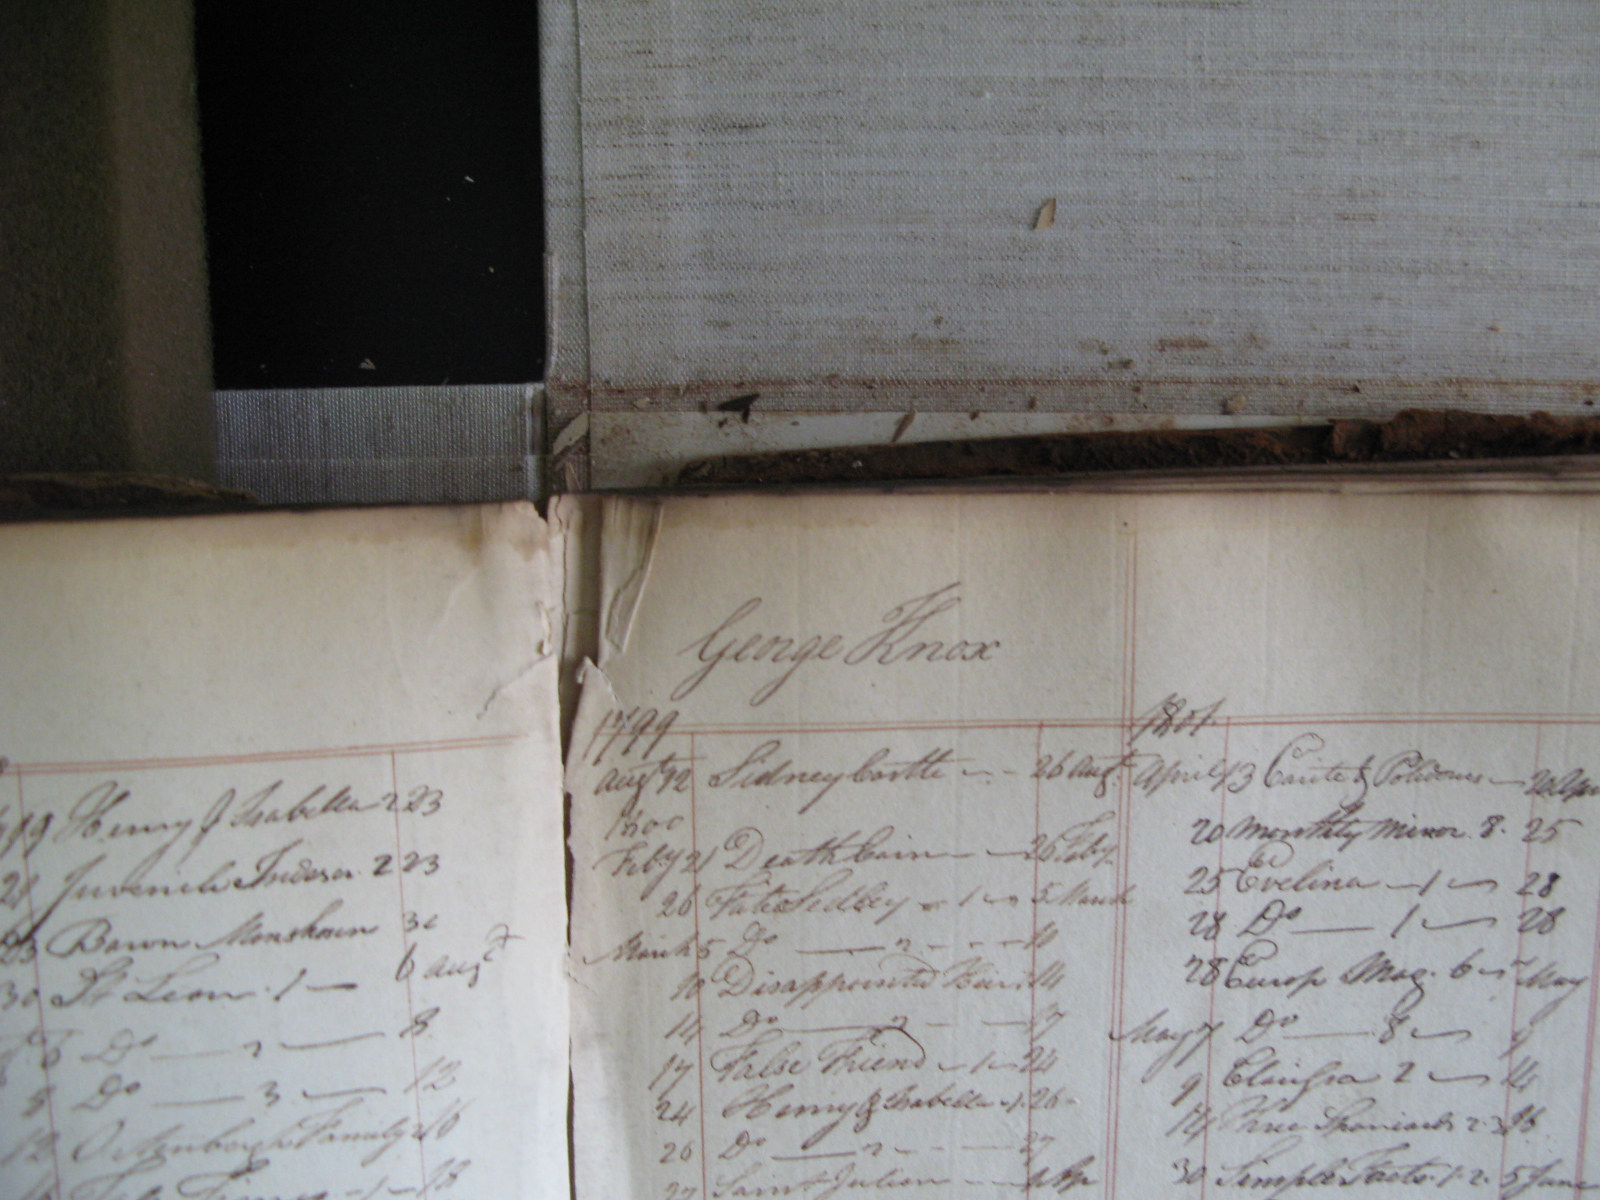 19 Henry & Isabella 2 23
21 Juvenile 2 23
25 Baron 30
30 St Leon 1 — 6 augt
6 Do — 2 — 8
8 Do — 3 — 12
12 Family 2 16
George Knox
1799
augt 12 Sidney Castle — 26 augt
1800
Feby 21 Death Cain — 26 Feby
26 Kate Sedley — 1 — 5 March
March 5 Do — 2 — 10
10 Disappointed Heir 14
14 Do — 2 — 17
17 False Friend — 1 — 24
24 Henry & Isabella — 1 26
26 Do — 2 — 27
27 Saint Julien —
1801
April 13 — 20 Apr
20 Monthly Mirror 8. 25
25 Evelina — 1 — 28
28 Do — 1 — 28
28 Europ Mag. 6 — May
May 7 Do — 8 — 9
9 Clarissa 2 — 14
14 Three Spaniards 2.3 16
30 Simple Facts 1.2. 5 June